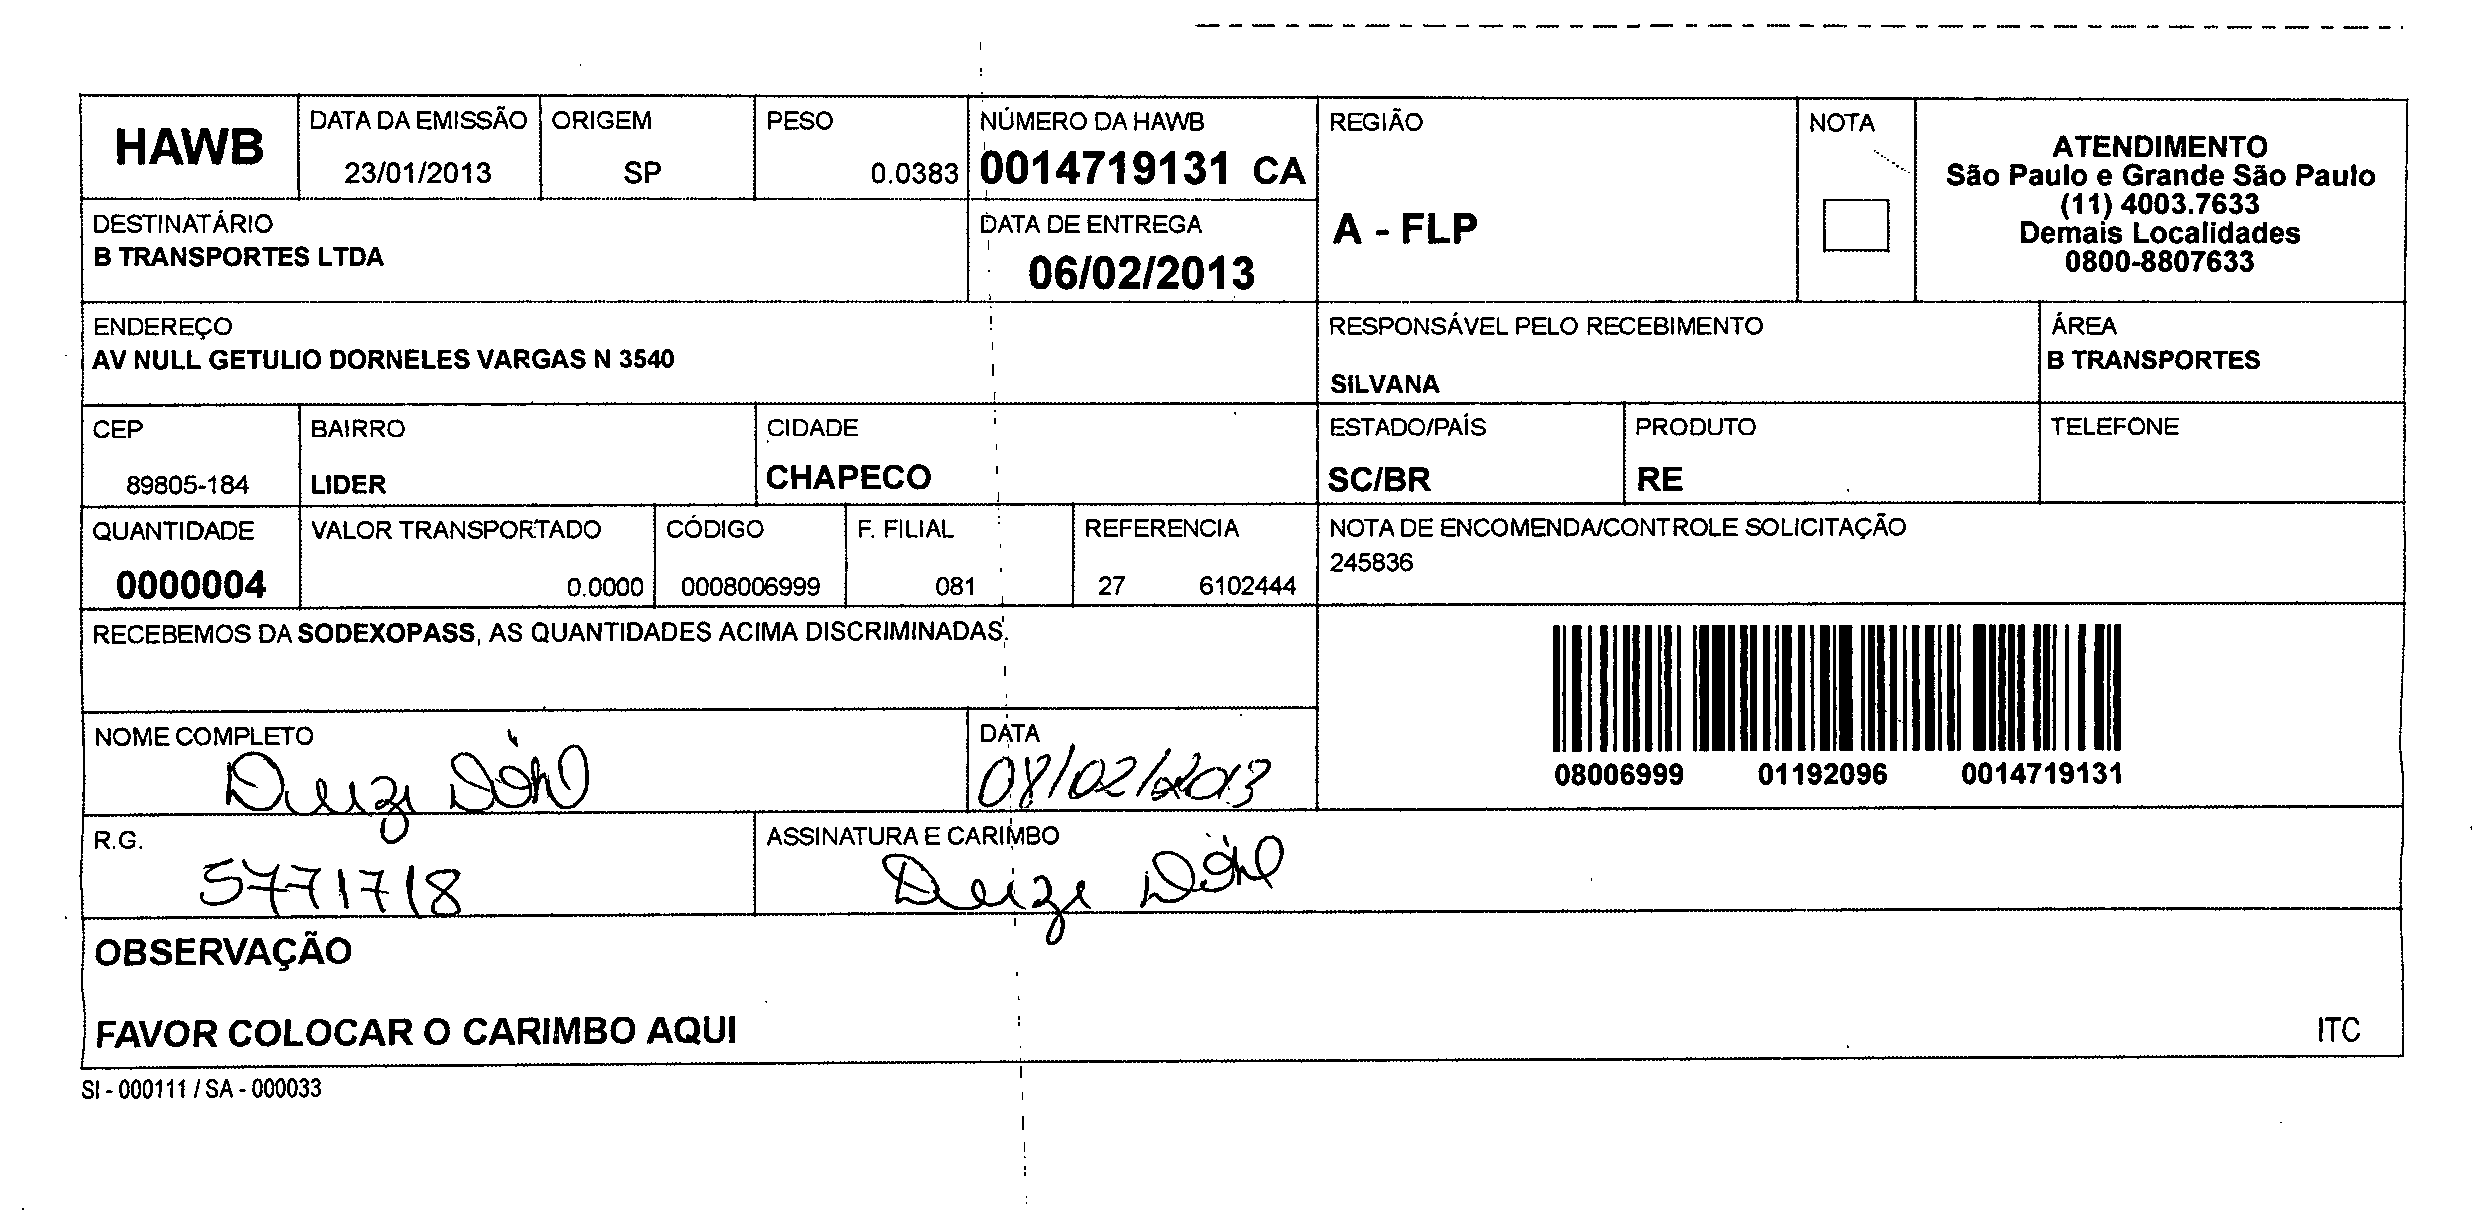 HAWB
DATA DA EMISSÃO
23/01/2013
ORIGEM
SP
PESO
0.0383
NÚMERO DA HAWB
0014719131 CA
REGIÃO
A - FLP
NOTA
ATENDIMENTO
São Paulo e Grande São Paulo
(11) 4003.7633
Demais Localidades
0800-8807633
DESTINATÁRIO
B TRANSPORTES LTDA
DATA DE ENTREGA
06/02/2013
ENDEREÇO
AV NULL GETULIO DORNELES VARGAS N 3540
RESPONSÁVEL PELO RECEBIMENTO
SILVANA
ÁREA
B TRANSPORTES
CEP
89805-184
BAIRRO
LIDER
CIDADE
CHAPECO
ESTADO/PAÍS
SC/BR
PRODUTO
RE
TELEFONE
QUANTIDADE
0000004
VALOR TRANSPORTADO
0.0000
CÓDIGO
0008006999
F. FILIAL
081
REFERENCIA
27 6102444
NOTA DE ENCOMENDA/CONTROLE SOLICITAÇÃO
245836
RECEBEMOS DA SODEXOPASS, AS QUANTIDADES ACIMA DISCRIMINADAS.
08006999 01192096 0014719131
NOME COMPLETO
DATA
08/02/2013
R.G.
5771718
ASSINATURA E CARIMBO
OBSERVAÇÃO
FAVOR COLOCAR O CARIMBO AQUI
ITC
SI - 000111 / SA - 000033